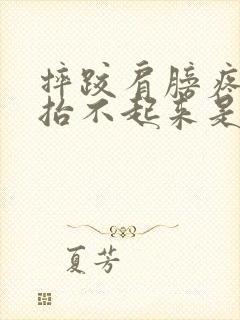 摔跤肩膀疼
抬不起来是
夏芳